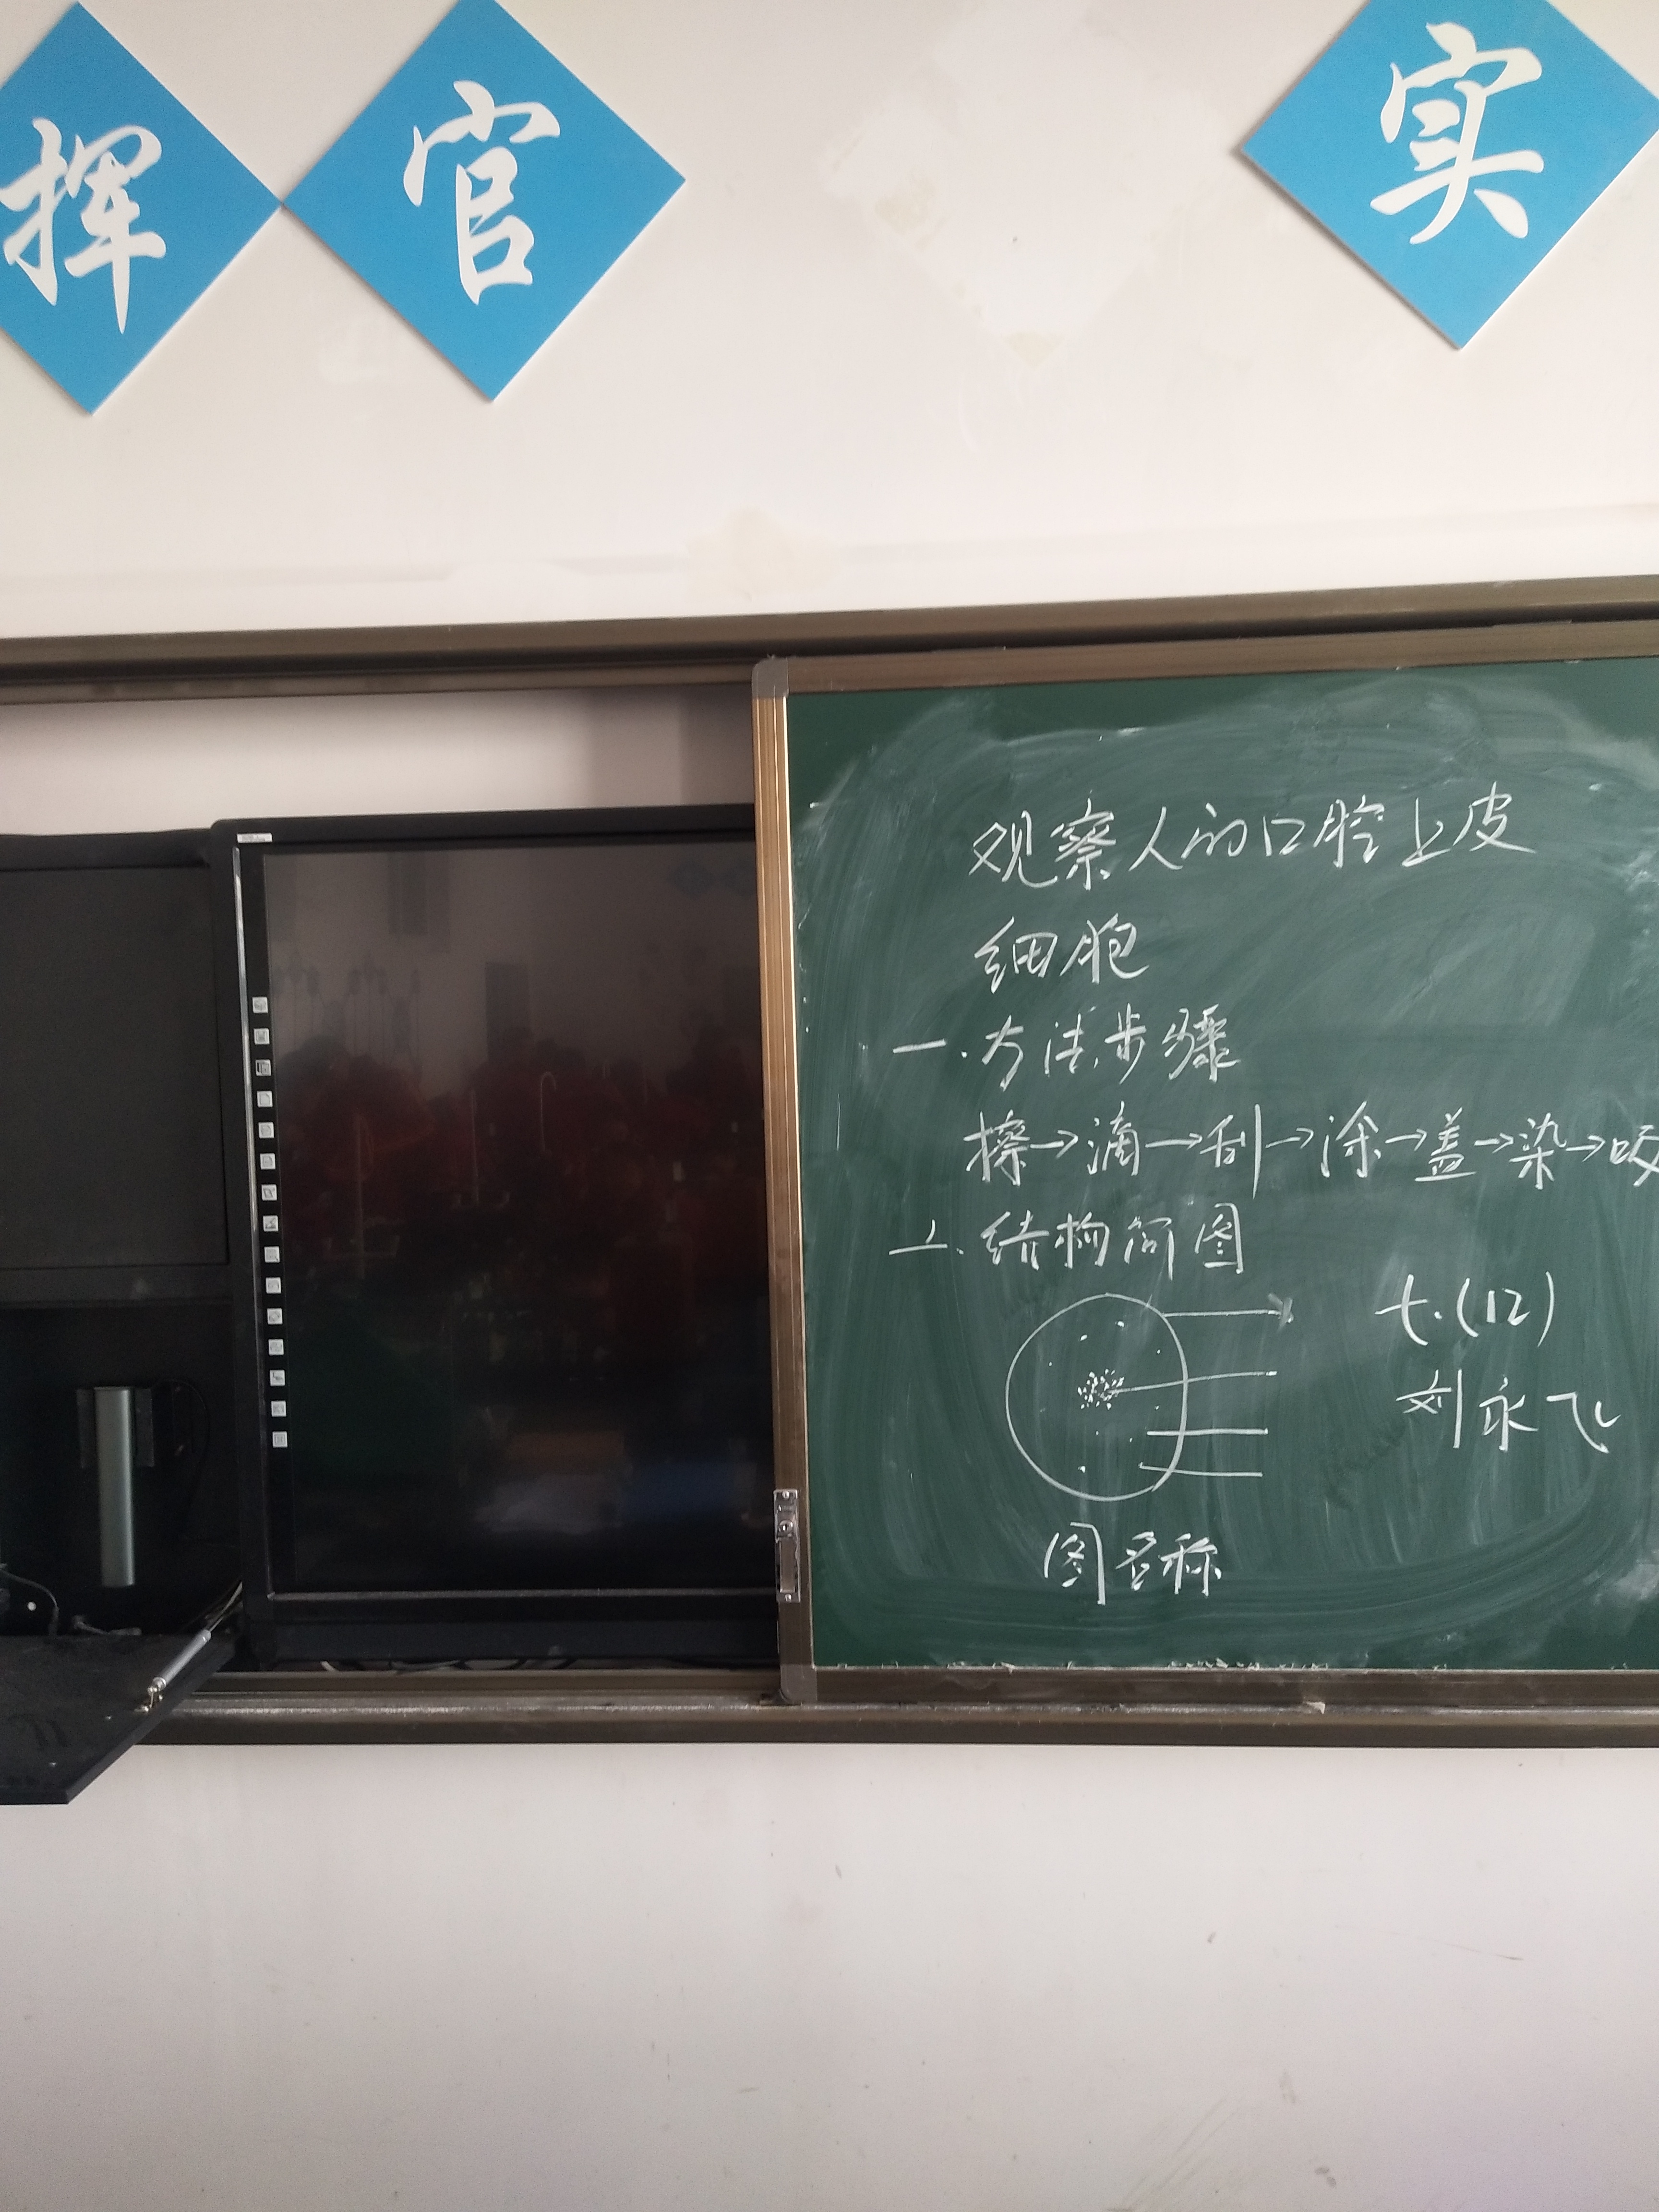 挥 官 实
观察人的口腔上皮
细胞
一.方法步骤
擦→滴→刮→涂→盖→染→吸
二.结构简图
七.(12)
刘永飞
图名称